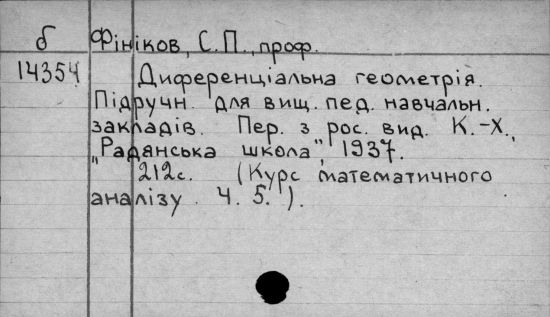 б Фініков, С.П., проф.
14354 Диференціальна геометрія.
Підручн. для вищ. пед. навчальн.
закладів. Пер. з рос. вид. К.-Х.,
„Радянська школа", 1937.
212с. (Курс математичного
аналізу. Ч. 5.).